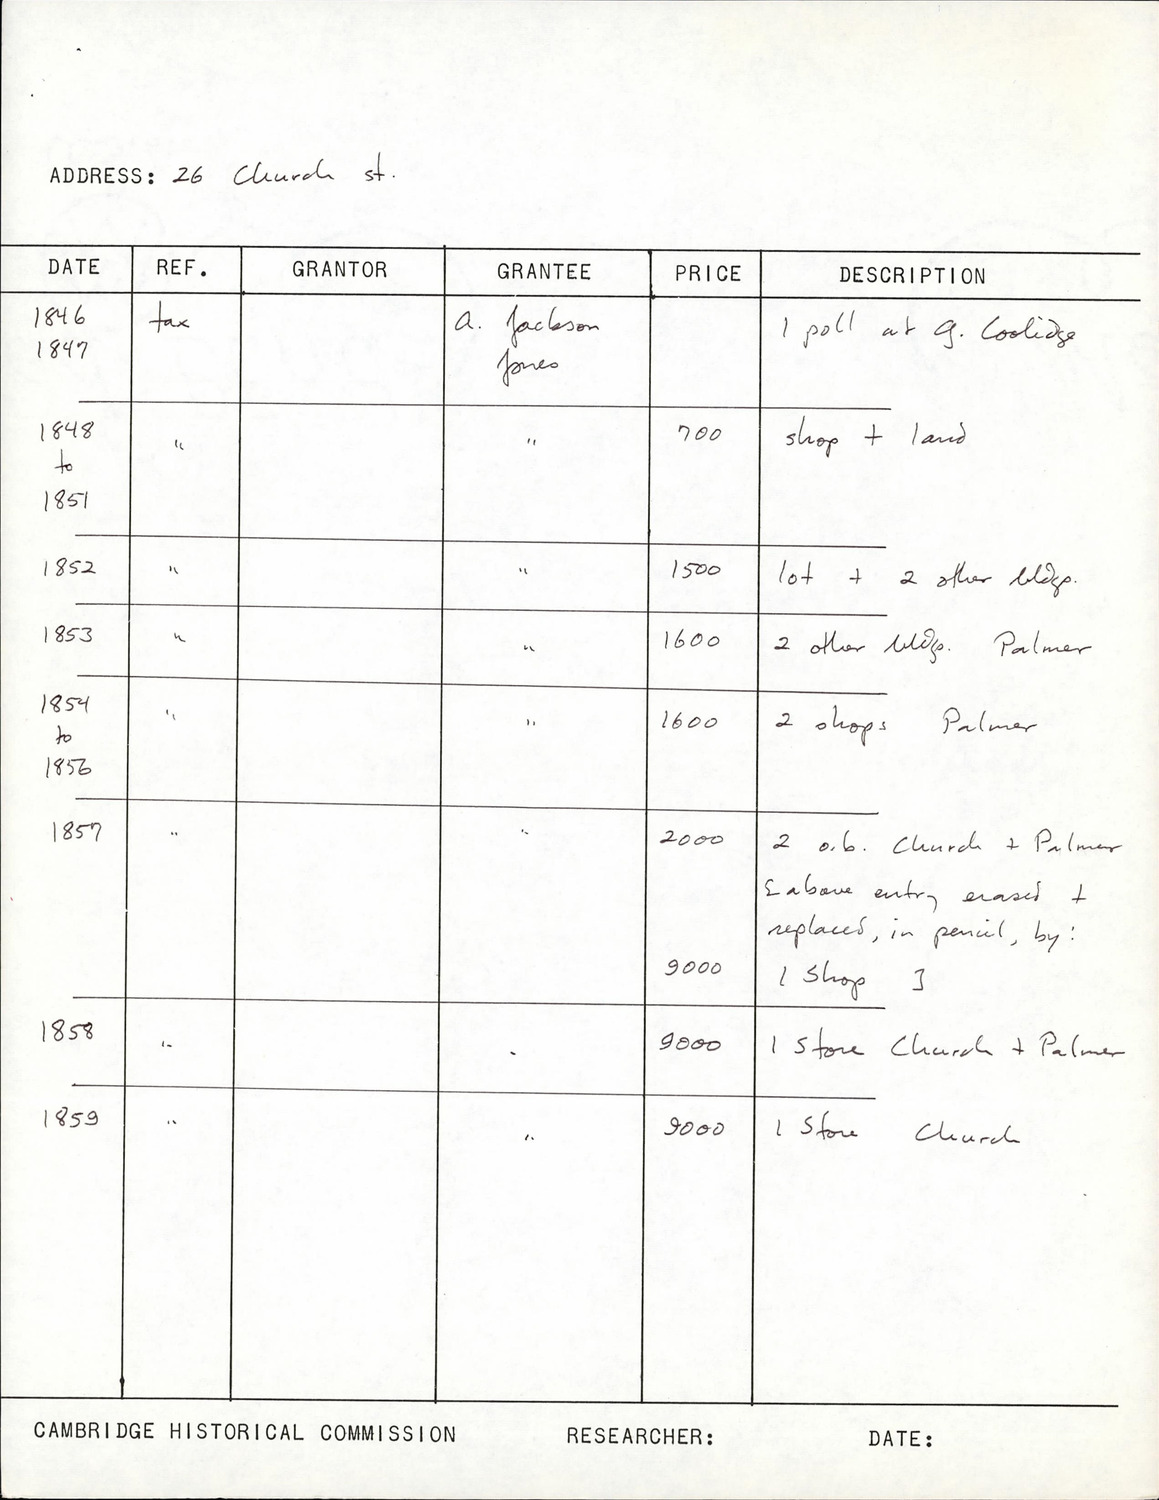 ADDRESS: 26 Church st.
DATE REF. GRANTOR GRANTEE PRICE DESCRIPTION
1846 tax A. Jackson 1 poll at G. Coolidge
1847 Jones
1848 " " 700 shop + land
to
1851
1852 " " 1500 lot + 2 other bldgs.
1853 " " 1600 2 other bldgs. Palmer
1854 " " 1600 2 shops Palmer
to
1856
1857 " " 2000 2 o.b. Church + Palmer
[above entry erased +
replaced, in pencil, by:
9000 1 Shop ]
1858 " " 9000 1 Store Church + Palmer
1859 " " 9000 1 Store Church
CAMBRIDGE HISTORICAL COMMISSION RESEARCHER: DATE: